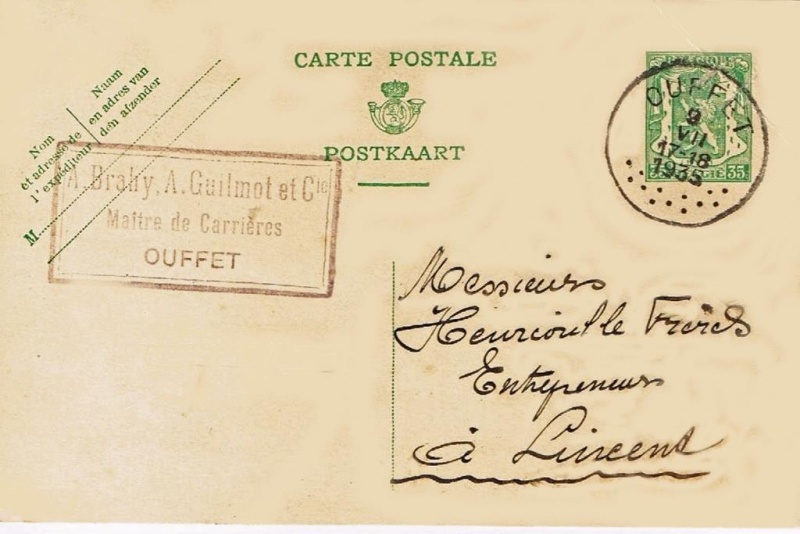 CARTE POSTALE
POSTKAART
Naam
en adres van
den afzender
Nom
et adresse de
l'expéditeur
M
A. Brahy, A. Guilmot et Cie
Maître de Carrières
OUFFET
BELGIQUE
35
OUFFET
9
VII
17-18
1935
Messieurs
Henrioulle Frères
Entrepreneurs
à Lincent